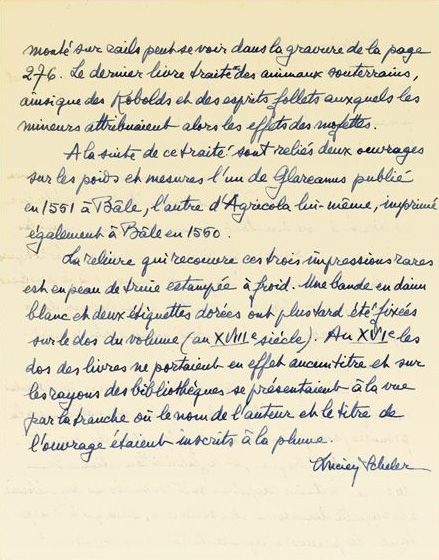 monté sur rails peut se voir dans la gravure de la page
276. Le dernier livre traite des animaux souterrains,
ainsi que des Kobolds et des esprits follets auxquels les
mineurs attribuaient alors les effets des mofettes.
A la suite de ce traité sont reliés deux ouvrages
sur les poids et mesures l'un de Glareanus publié
en 1551 à Bâle, l'autre d'Agricola lui-même, imprimé
également à Bâle en 1550.
La reliure qui recouvre ces trois impressions rares
est en peau de truie estampée à froid. Une bande en daim
blanc et deux étiquettes dorées ont plus tard été fixées
sur le dos du volume (au XVIIIe siècle). Au XVIe les
dos des livres ne portaient en effet aucun titre et sur
les rayons des bibliothèques se présentaient à la vue
par la tranche où le nom de l'auteur et le titre de
l'ouvrage étaient inscrits à la plume.
Lucien Scheler